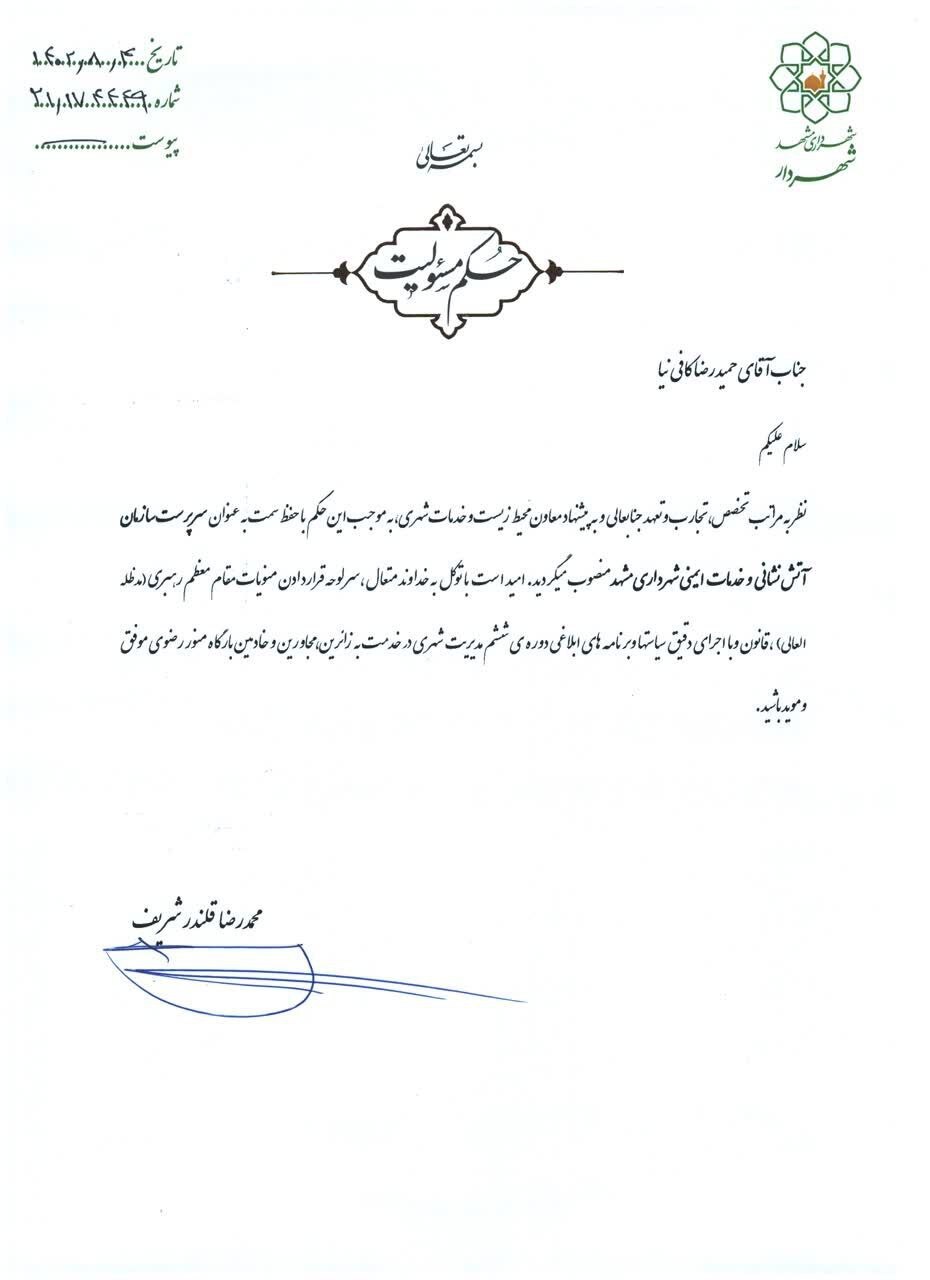 تاریخ ۱۴۰۲٫۸٫۰۴
شماره ۲۱٫۱۷۰۴۴۴۹
پیوست
شهرداری مشهد
شهردار
بسمه تعالی
حکم مسئولیت
جناب آقای حمیدرضا کافی نیا
سلام علیکم
نظر به مراتب تخصص، تجارب و تعهد جنابعالی و به پیشنهاد معاون محیط زیست و خدمات شهری، به موجب این حکم با حفظ سمت به عنوان سرپرست سازمان
آتش نشانی و خدمات ایمنی شهرداری مشهد منصوب میگردید. امید است با توکل به خداوند متعال، سرلوحه قرار دادن منویات مقام معظم رهبری (مدظله
العالی)، قانون و با اجرای دقیق سیاستها و برنامه های ابلاغی دوره ی ششم مدیریت شهری در خدمت به زائرین، مجاورین و خادمین بارگاه منور رضوی موفق
و موید باشید.
محمدرضا قلندر شریف